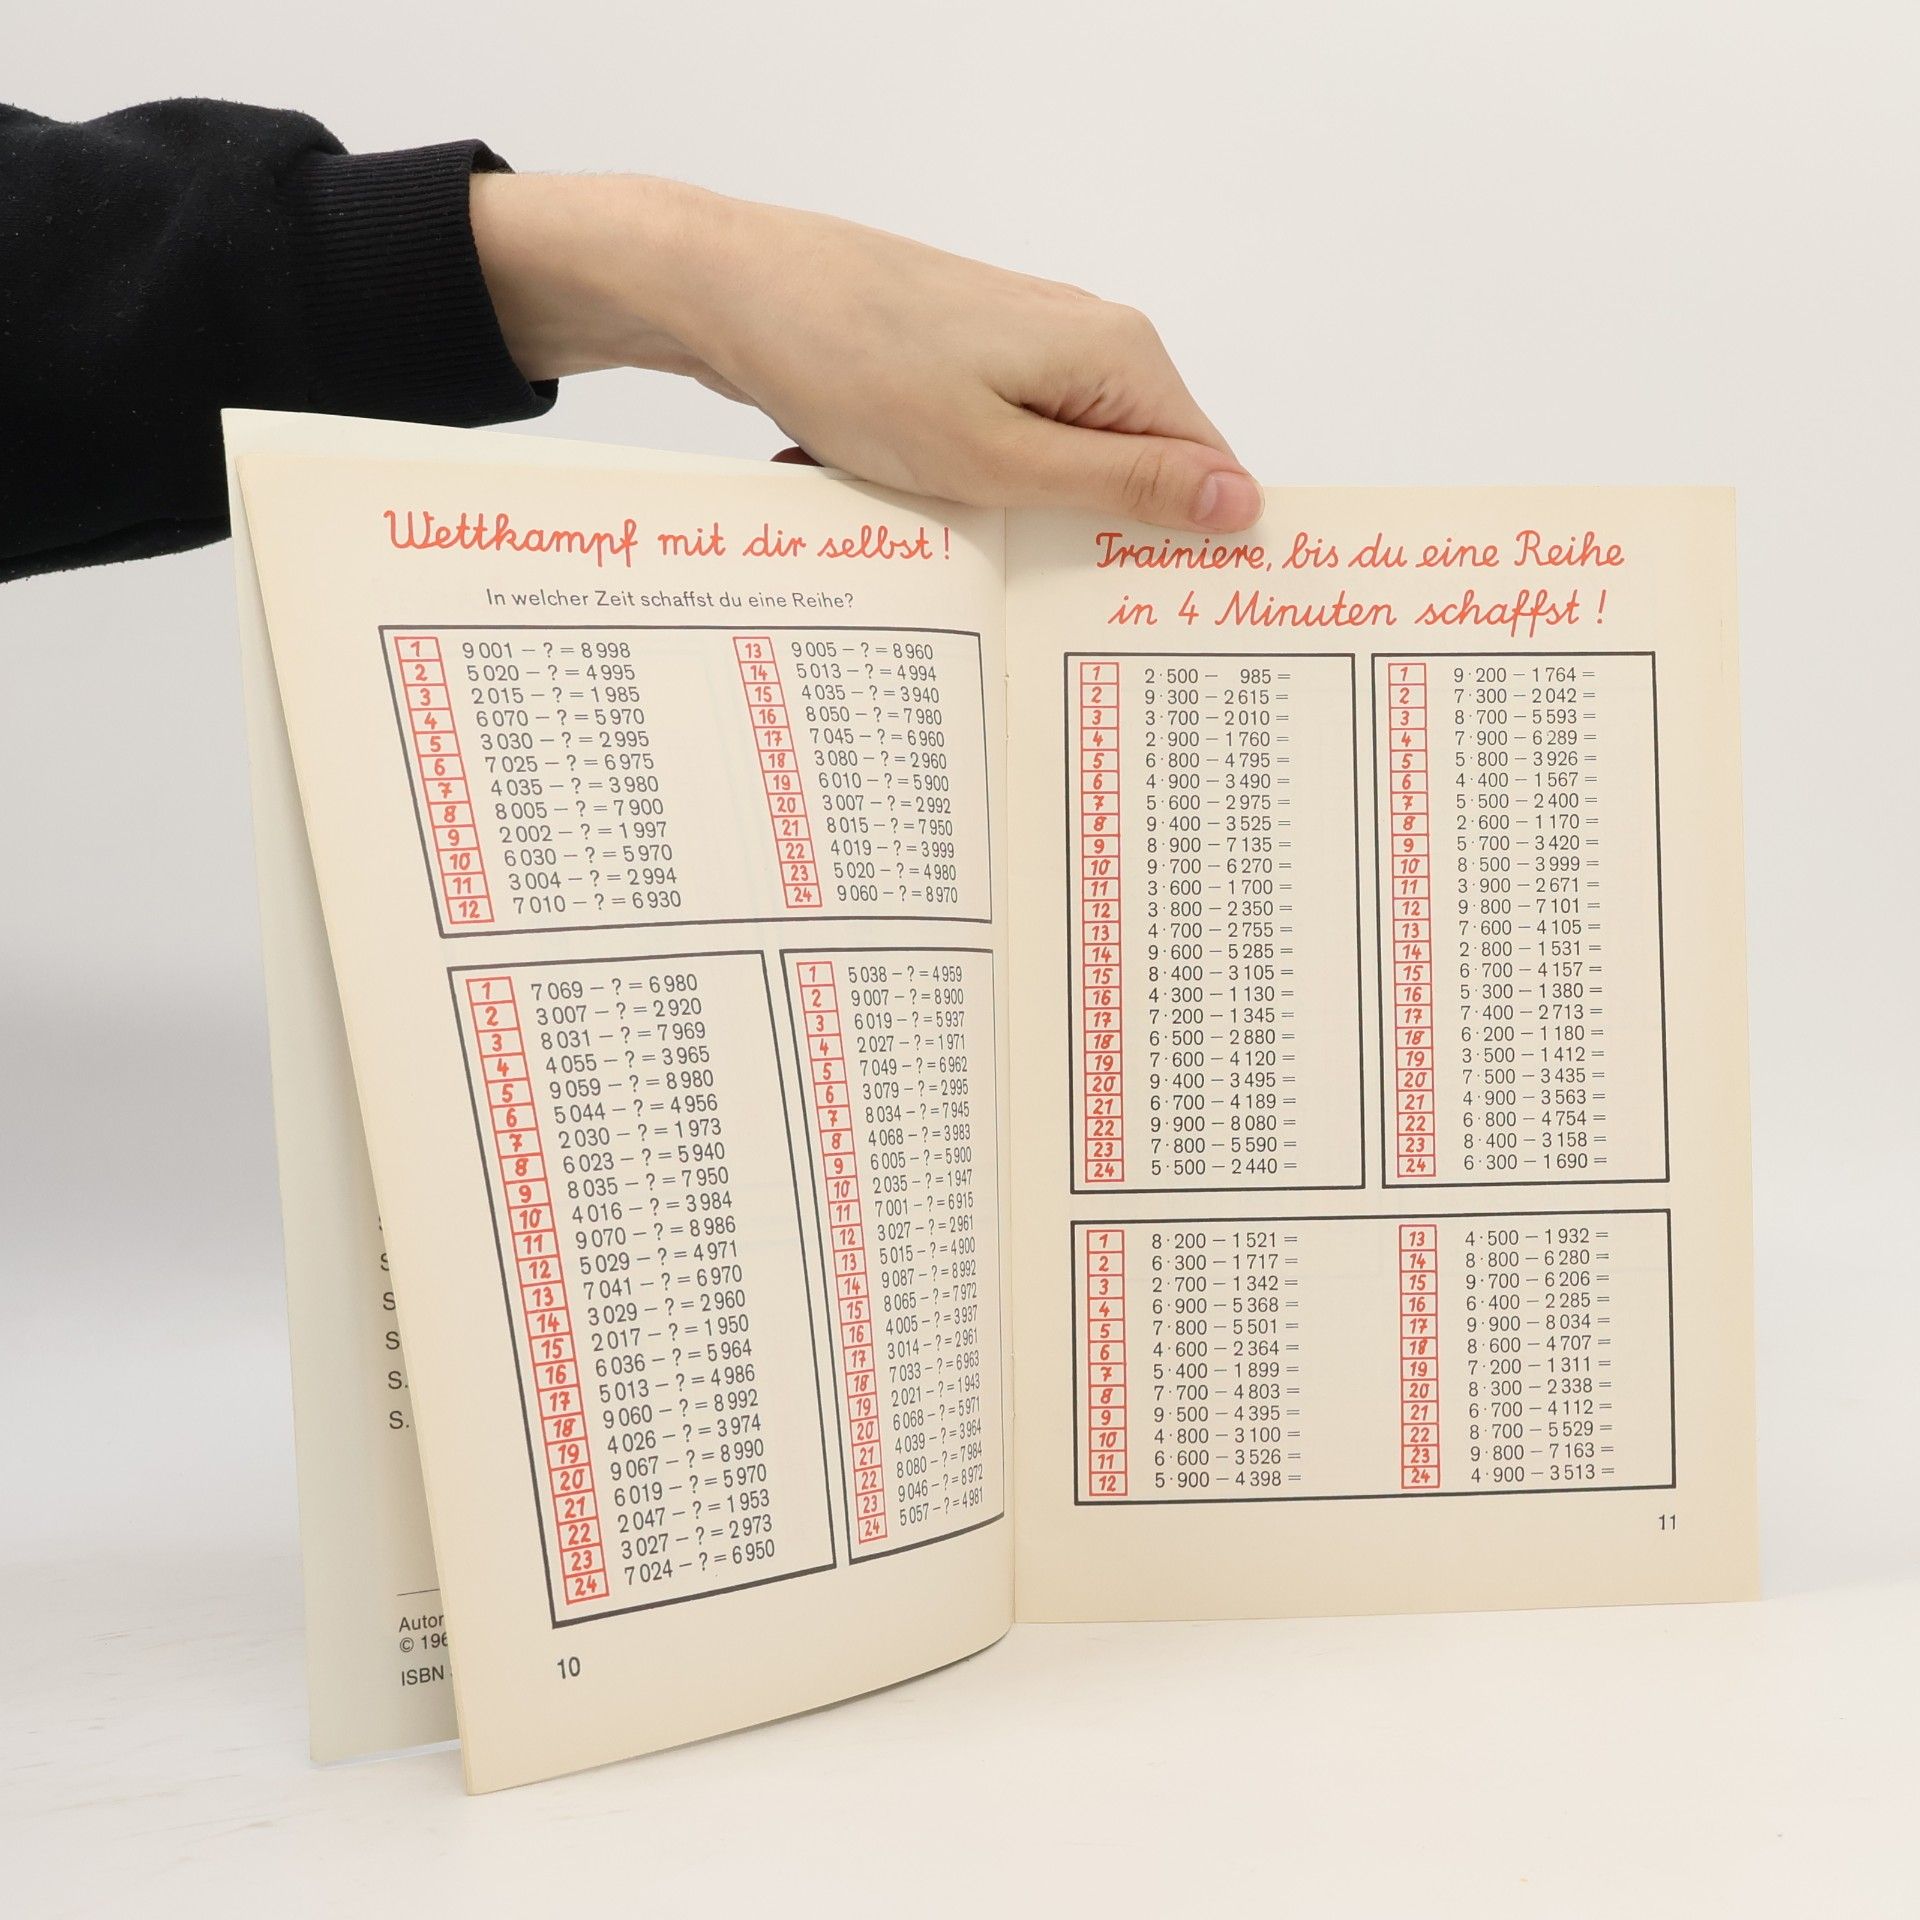 Wettkampf mit dir selbst!
In welcher Zeit schaffst du eine Reihe?
1 9 001 – ? = 8 998
2 5 020 – ? = 4 995
3 2 015 – ? = 1 985
4 6 070 – ? = 5 970
5 3 030 – ? = 2 995
6 7 025 – ? = 6 975
7 4 035 – ? = 3 980
8 8 005 – ? = 7 900
9 2 002 – ? = 1 997
10 6 030 – ? = 5 970
11 3 004 – ? = 2 994
12 7 010 – ? = 6 930
13 9 005 – ? = 8 960
14 5 013 – ? = 4 994
15 4 035 – ? = 3 940
16 8 050 – ? = 7 980
17 7 045 – ? = 6 960
18 3 080 – ? = 2 960
19 6 010 – ? = 5 900
20 3 007 – ? = 2 992
21 8 015 – ? = 7 950
22 4 019 – ? = 3 999
23 5 020 – ? = 4 980
24 9 060 – ? = 8 970
1 7 069 – ? = 6 980
2 3 007 – ? = 2 920
3 8 031 – ? = 7 969
4 4 055 – ? = 3 965
5 9 059 – ? = 8 980
6 5 044 – ? = 4 956
7 2 030 – ? = 1 973
8 6 023 – ? = 5 940
9 8 035 – ? = 7 950
10 4 016 – ? = 3 984
11 9 070 – ? = 8 986
12 5 029 – ? = 4 971
13 7 041 – ? = 6 970
14 3 029 – ? = 2 960
15 2 017 – ? = 1 950
16 6 036 – ? = 5 964
17 5 013 – ? = 4 986
18 9 060 – ? = 8 992
19 4 026 – ? = 3 974
20 9 067 – ? = 8 990
21 6 019 – ? = 5 970
22 2 047 – ? = 1 953
23 3 027 – ? = 2 973
24 7 024 – ? = 6 950
1 5 038 – ? = 4 959
2 9 007 – ? = 8 900
3 6 019 – ? = 5 937
4 2 027 – ? = 1 971
5 7 049 – ? = 6 962
6 3 079 – ? = 2 995
7 8 034 – ? = 7 945
8 4 068 – ? = 3 983
9 6 005 – ? = 5 900
10 2 035 – ? = 1 947
11 7 001 – ? = 6 915
12 3 027 – ? = 2 961
13 5 015 – ? = 4 900
14 9 087 – ? = 8 992
15 8 065 – ? = 7 972
16 4 005 – ? = 3 937
17 3 014 – ? = 2 961
18 7 033 – ? = 6 963
19 2 021 – ? = 1 943
20 6 068 – ? = 5 971
21 4 039 – ? = 3 964
22 8 080 – ? = 7 984
23 9 046 – ? = 8 972
24 5 057 – ? = 4 981
10
S.
S.
Autor
© 196
ISBN
Trainiere, bis du eine Reihe
in 4 Minuten schaffst!
1 2·500 – 985 =
2 9·300 – 2 615 =
3 3·700 – 2 010 =
4 2·900 – 1 760 =
5 6·800 – 4 795 =
6 4·900 – 3 490 =
7 5·600 – 2 975 =
8 9·400 – 3 525 =
9 8·900 – 7 135 =
10 9·700 – 6 270 =
11 3·600 – 1 700 =
12 3·800 – 2 350 =
13 4·700 – 2 755 =
14 9·600 – 5 285 =
15 8·400 – 3 105 =
16 4·300 – 1 130 =
17 7·200 – 1 345 =
18 6·500 – 2 880 =
19 7·600 – 4 120 =
20 9·400 – 3 495 =
21 6·700 – 4 189 =
22 9·900 – 8 080 =
23 7·800 – 5 590 =
24 5·500 – 2 440 =
1 9·200 – 1 764 =
2 7·300 – 2 042 =
3 8·700 – 5 593 =
4 7·900 – 6 289 =
5 5·800 – 3 926 =
6 4·400 – 1 567 =
7 5·500 – 2 400 =
8 2·600 – 1 170 =
9 5·700 – 3 420 =
10 8·500 – 3 999 =
11 3·900 – 2 671 =
12 9·800 – 7 101 =
13 7·600 – 4 105 =
14 2·800 – 1 531 =
15 6·700 – 4 157 =
16 5·300 – 1 380 =
17 7·400 – 2 713 =
18 6·200 – 1 180 =
19 3·500 – 1 412 =
20 7·500 – 3 435 =
21 4·900 – 3 563 =
22 6·800 – 4 754 =
23 8·400 – 3 158 =
24 6·300 – 1 690 =
1 8·200 – 1 521 =
2 6·300 – 1 717 =
3 2·700 – 1 342 =
4 6·900 – 5 368 =
5 7·800 – 5 501 =
6 4·600 – 2 364 =
7 5·400 – 1 899 =
8 7·700 – 4 803 =
9 9·500 – 4 395 =
10 4·800 – 3 100 =
11 6·600 – 3 526 =
12 5·900 – 4 398 =
13 4·500 – 1 932 =
14 8·800 – 6 280 =
15 9·700 – 6 206 =
16 6·400 – 2 285 =
17 9·900 – 8 034 =
18 8·600 – 4 707 =
19 7·200 – 1 311 =
20 8·300 – 2 338 =
21 6·700 – 4 112 =
22 8·700 – 5 529 =
23 9·800 – 7 163 =
24 4·900 – 3 513 =
11